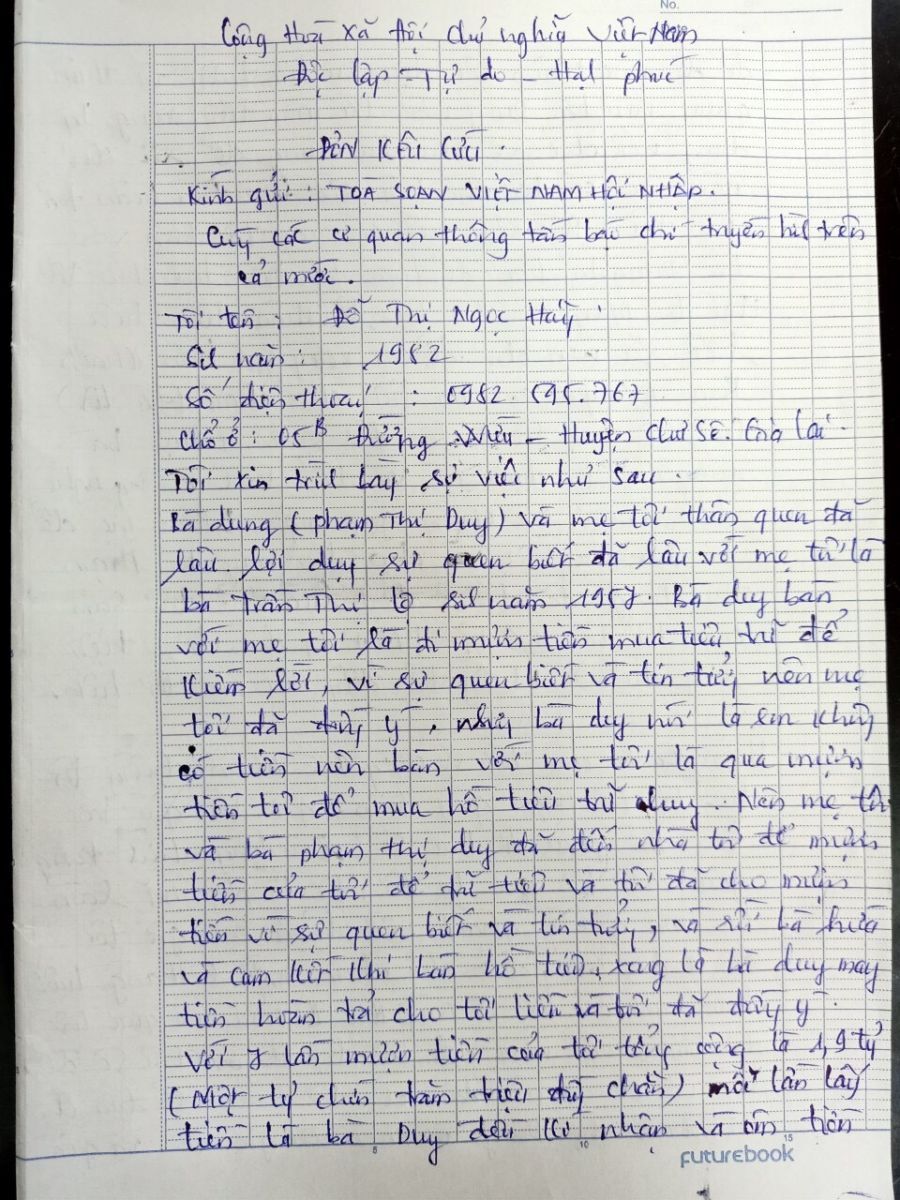 No.
Cộng Hoà Xã Hội chủ nghĩa Việt Nam
Độc lập - Tự do - Hạh phúc
ĐƠN KÊU CỨU.
Kính gửi: TOÀ SOẠN VIỆT NAM HỘI NHẬP.
Cùng các cơ quan thông tấn báo chí truyền hìh trên
cả nước.
Tôi tên: Đỗ Thị Ngọc
Sih năm: 1982
Số điện thoại: 0982. 595.767
chổ ở: 05B Đường - Huyện chư sê. Gia lai.
Tôi xin trìh bày sự việc như sau.
Bà dung (phạm Thị Duy) và mẹ tôi thân quen đã
lâu. lợi dụng sự quen biết đã lâu với mẹ tôi là
bà Trần Thị sih năm 1957. Bà duy bàn
với mẹ tôi là đi mượn tiền mua tiêu trữ để
kiếm lời, vì sự quen biết và tin tưởng nên mẹ
tôi đã đồng ý, nhưng bà duy nói là em không
có tiền nên bàn với mẹ tôi là qua mượn
tiền tôi để mua hồ tiêu trữ chung. Nên mẹ tôi
và bà phạm thị duy đã đến nhà tôi để mượn
tiền của tôi để trữ tiêu và tôi đã cho mượn
tiền vì sự quen biết và tin tưởng, và bà hứa
và cam kết khi bán hồ tiêu xong là bà duy
tiền hoàn trả cho tôi liền và tôi đã đồng ý.
với 7 lần mượn tiền của tôi tổng cộng là 1,9 tỷ
(Một tỷ chín trăm triệu đồng chẵn) mỗi lần lấy
tiền là bà Duy đều kí nhận và ôm tiền
5 10 15
FUTUREBOOK